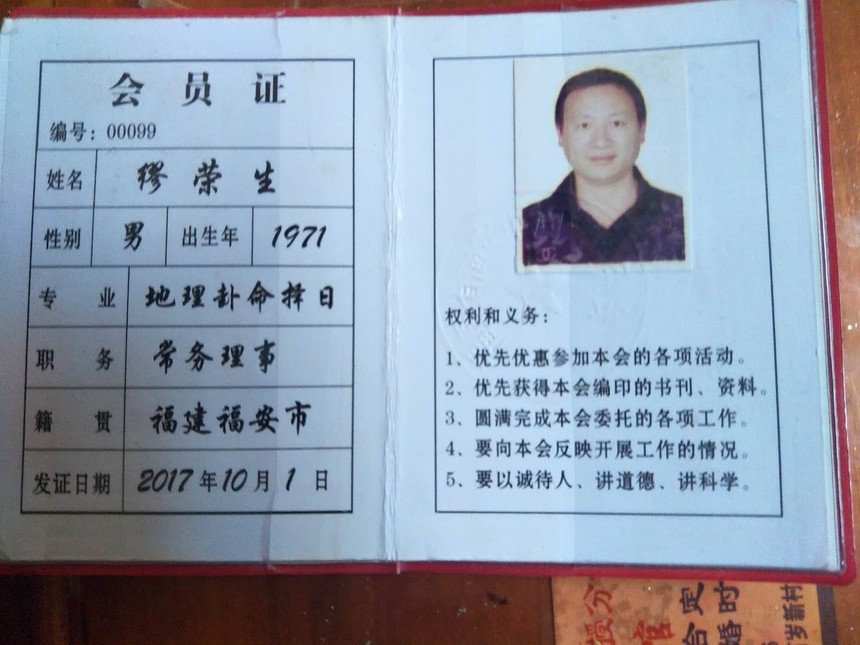 会员证
编号：00099
姓名 缪荣生
性别 男 出生年 1971
专业 地理卦命择日
职务 常务理事
籍贯 福建福安市
发证日期 2017年10月1日
权利和义务：
1、优先优惠参加本会的各项活动。
2、优先获得本会编印的书刊、资料。
3、圆满完成本会委托的各项工作。
4、要向本会反映开展工作的情况。
5、要以诚待人、讲道德、讲科学。
定时
合婚
岁新村